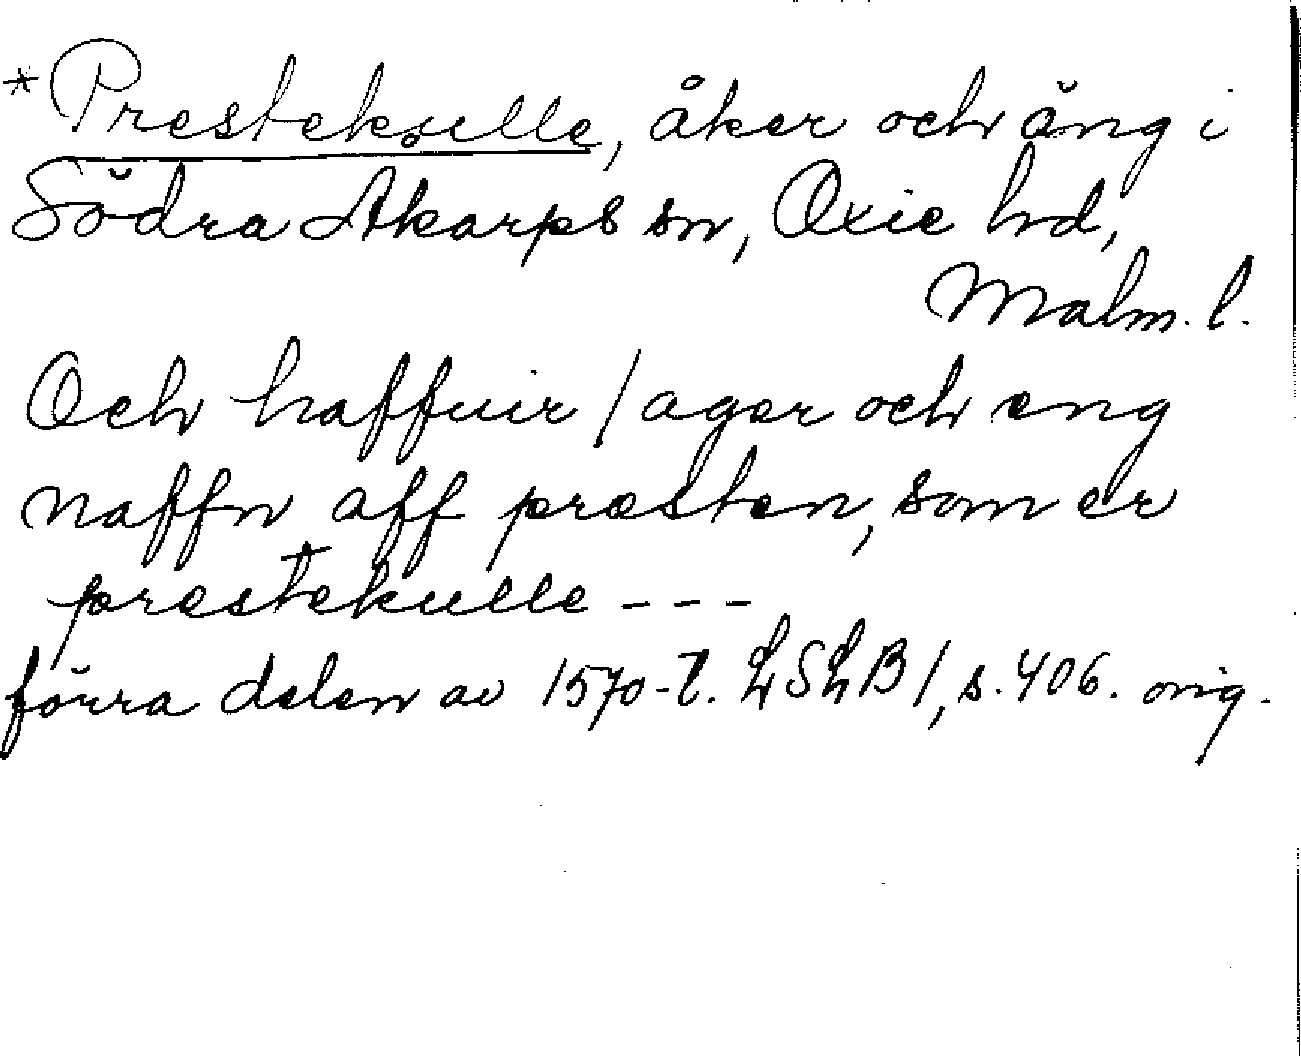 *Prestekulle, åker och äng i
Södra Åkarps sn, Oxie hd,
Malm. l.
Och haffuir / ager och eng
naffn aff præsten, som er
prestekulle - - -
förra delen av 1570-t. LSLB 1, s. 406. orig.